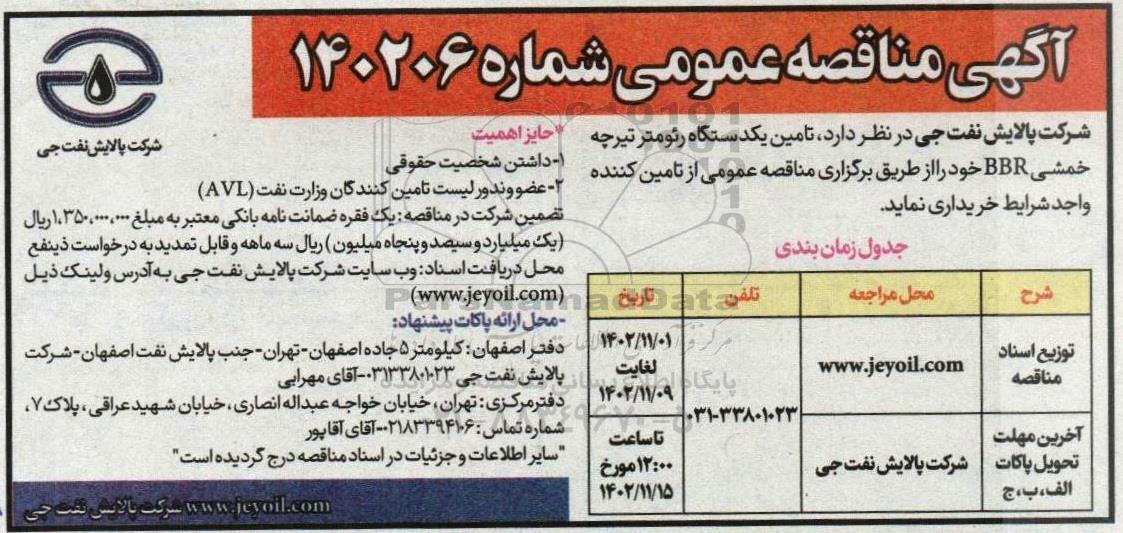 آگهی مناقصه عمومی شماره ۱۴۰۲۰۶
شرکت پالایش نفت جی
شرکت پالایش نفت جی در نظر دارد، تامین یکدستگاه رئومتر تیرچه
خمشی BBR خود را از طریق برگزاری مناقصه عمومی از تامین کننده
واجد شرایط خریداری نماید.
جدول زمان بندی
شرح محل مراجعه تلفن تاریخ
توزیع اسناد مناقصه www.jeyoil.com ۰۳۱-۳۳۸۰۱۰۲۳ ۱۴۰۲/۱۱/۰۱ لغایت ۱۴۰۲/۱۱/۰۹
آخرین مهلت تحویل پاکات الف، ب، ج شرکت پالایش نفت جی تا ساعت ۱۲:۰۰ مورخ ۱۴۰۲/۱۱/۱۵
*حایز اهمیت
۱-داشتن شخصیت حقوقی
۲-عضو وندور لیست تامین کنندگان وزارت نفت (AVL)
تضمین شرکت در مناقصه: یک فقره ضمانت نامه بانکی معتبر به مبلغ ۱,۳۵۰,۰۰۰,۰۰۰ ریال
(یک میلیارد و سیصد و پنجاه میلیون) ریال سه ماهه و قابل تمدید به درخواست ذینفع
محل دریافت اسناد: وب سایت شرکت پالایش نفت جی به آدرس و لینک ذیل
(www.jeyoil.com)
-محل ارائه پاکات پیشنهاد:
دفتر اصفهان: کیلومتر ۵ جاده اصفهان-تهران-جنب پالایش نفت اصفهان-شرکت
پالایش نفت جی ۰۳۱۳۳۸۰۱۰۲۳-آقای مهرابی
دفتر مرکزی: تهران، خیابان خواجه عبداله انصاری، خیابان شهید عراقی، پلاک ۷،
شماره تماس: ۰۲۱۸۳۳۹۴۱۰۶-آقای آقاپور
"سایر اطلاعات و جزئیات در اسناد مناقصه درج گردیده است"
www.jeyoil.com شرکت پالایش نفت جی
ParsNamadData
پایگاه اطلاع رسانی مناقصه و مزایده